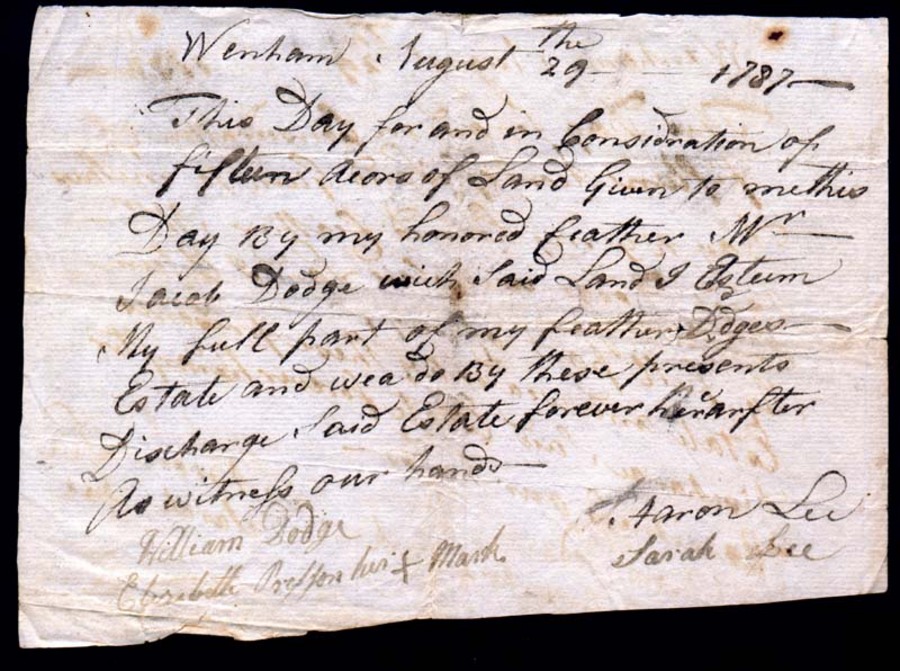 Wenham August the 29 — 1787 —
This Day for and in Considration of
fifteen Acors of Land Given to me this
Day By my honored feather Mr —
Jacob Dodge wich Said Land I Esteem
My full part of my feather Ddges —
Estate and wea do By these presents
Discharge Said Estate forever herarfter
As witness our hands —
Aaron Lee
Sarah Lee
William Dodge
Elizebeth Presson her + Mark